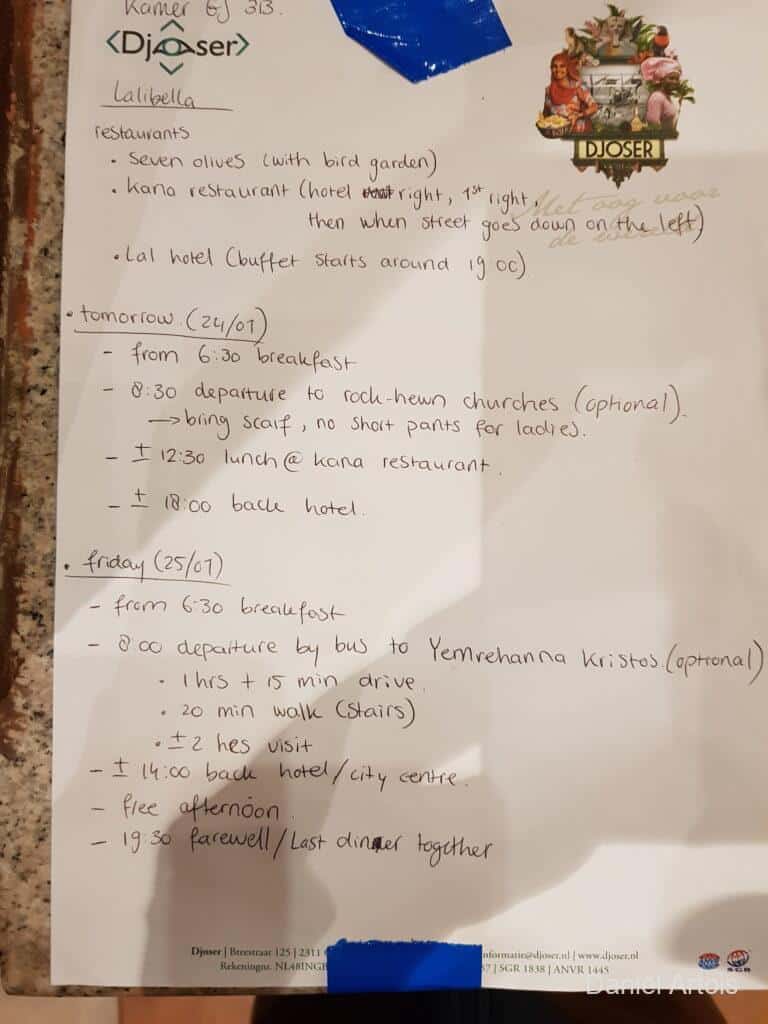 Kamer EJ 313.
<Djoser>
DJOSER
Lalibella
Met oog voor
restaurants
• Seven olives (with bird garden)
• Kana restaurant (hotel right, 1st right,
then when street goes down on the left)
• Lal hotel (buffet starts around 19 00)
• tomorrow. (24/01)
- from 6:30 breakfast
- 8:30 departure to rock-hewn churches (optional).
→ bring scarf, no short pants for ladies.
- ± 12:30 lunch @ kana restaurant.
- ± 18:00 back hotel.
• friday (25/01)
- from 6:30 breakfast
- 8:00 departure by bus to Yemrehanna Kristos. (optional)
• 1 hrs + 15 min drive.
• 20 min walk (stairs)
• ± 2 hes visit
- ± 14:00 back hotel/city centre.
- free afternoon.
- 19:30 farewell/Last dinner together
Djoser | Breestraat 125 | 2311
informatie@djoser.nl | www.djoser.nl
Rekeningnr. NL48INGB
7 | SGR 1838 | ANVR 1445
SGR
Daniel Artois